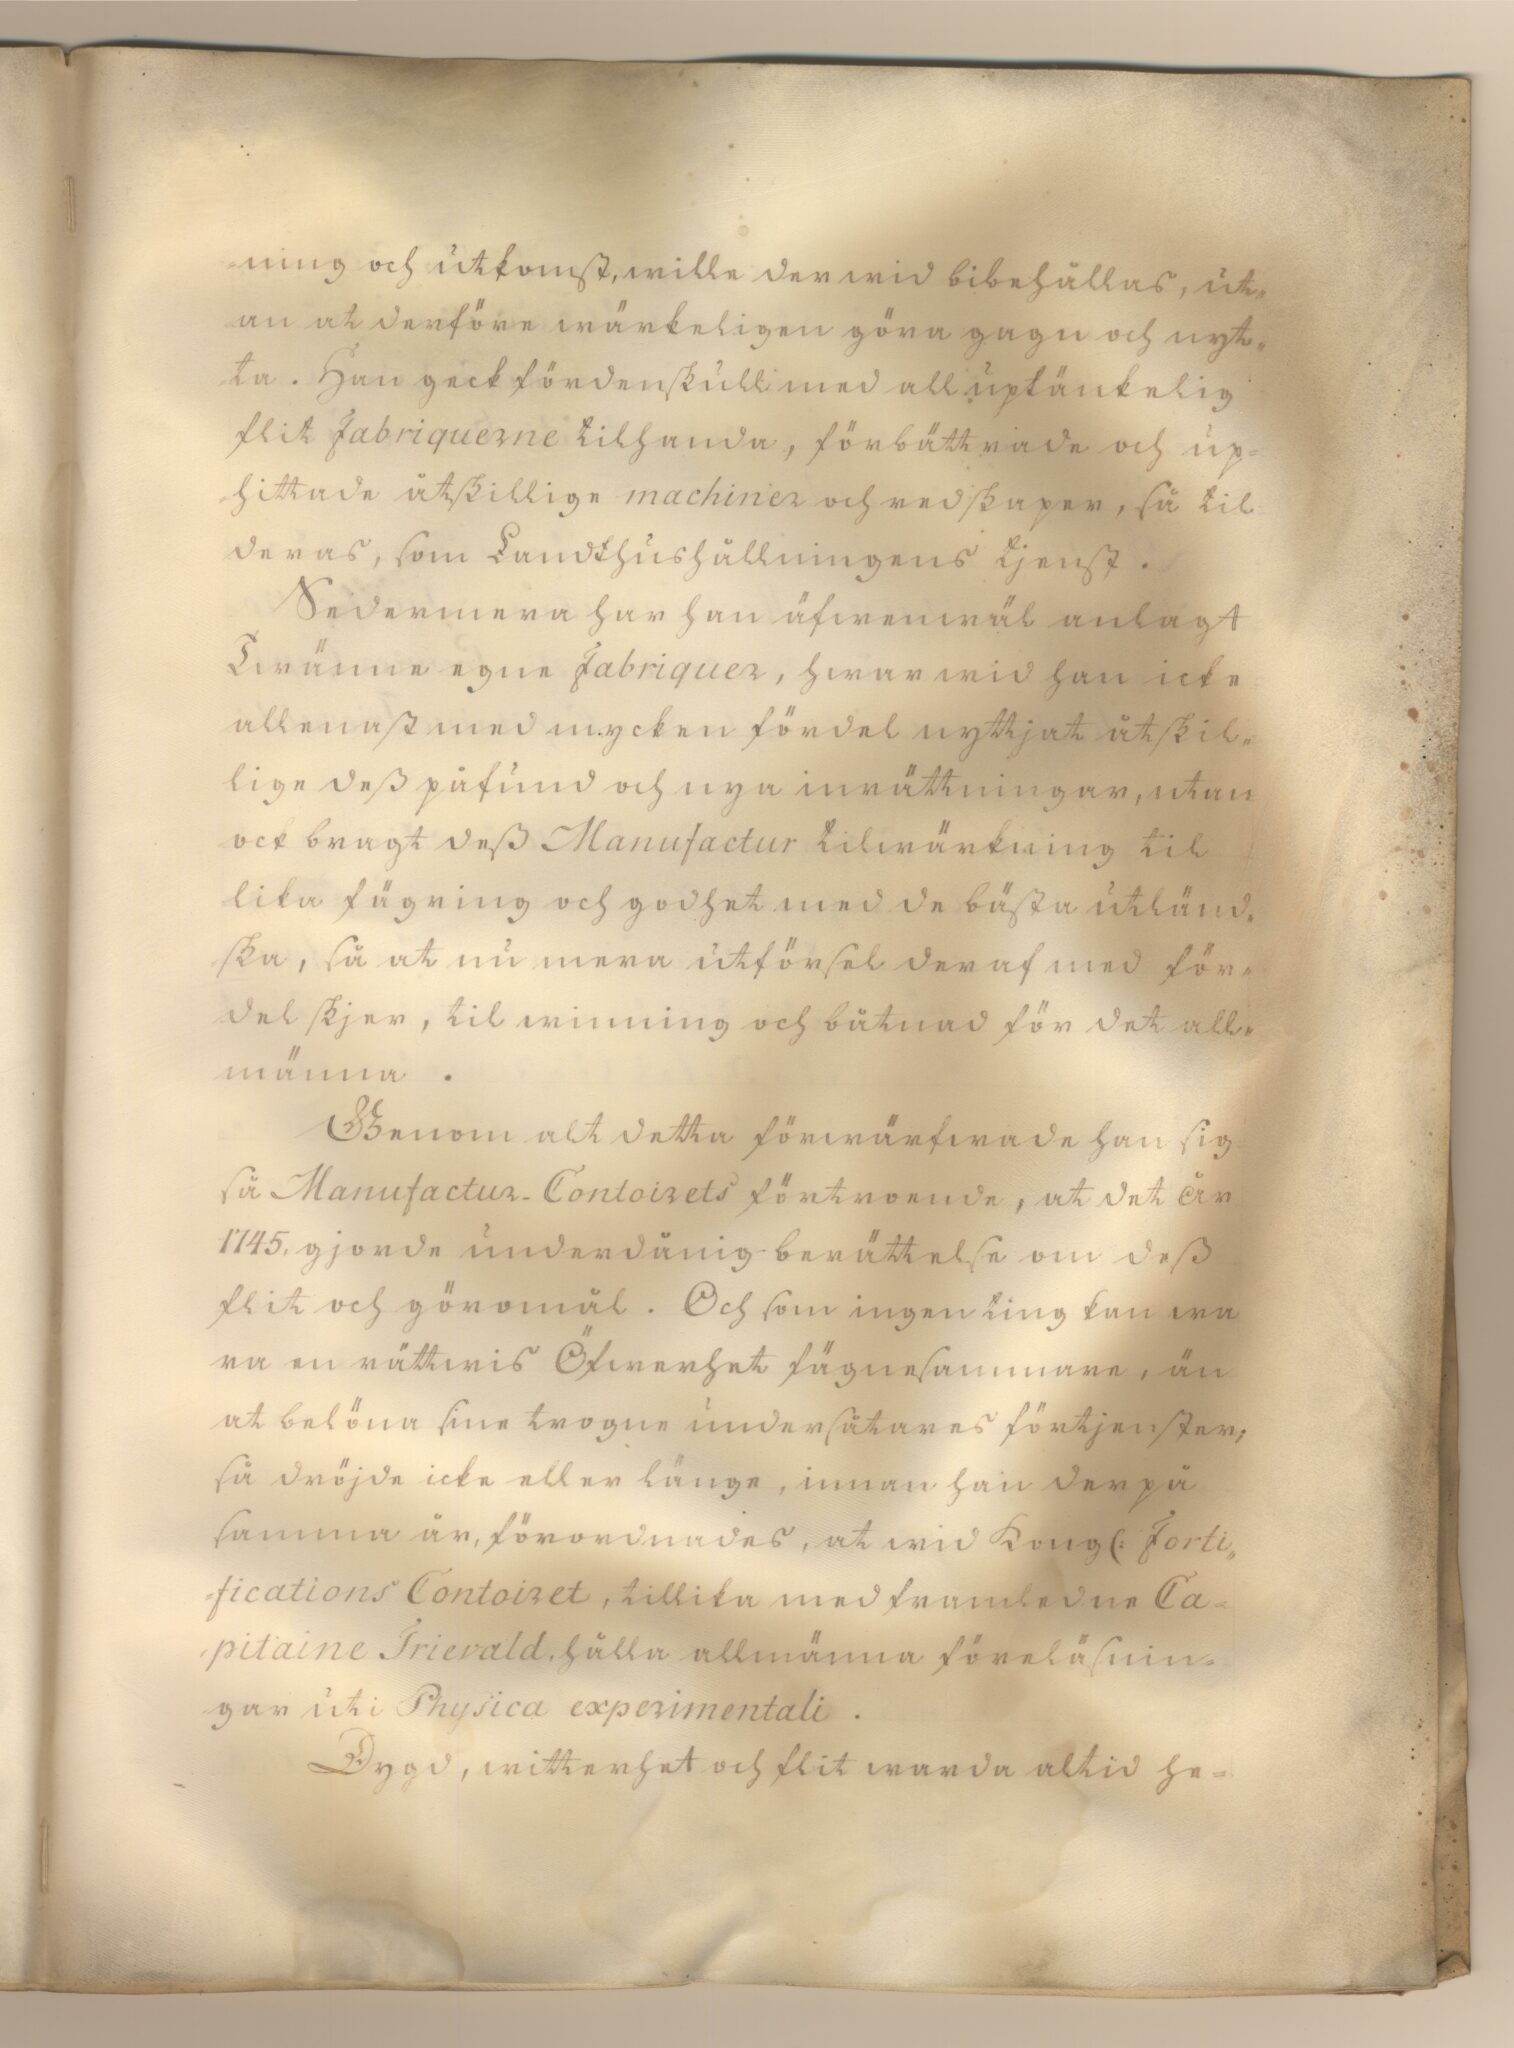 -ning och utkomst, wille derwid bibehållas, ut-
an at derföre wärkeligen göra gagn och nyt-
-ta. Han geck fördenskull med all uptänkelig
flit Fabriquerne tilhanda, förbättrade och up-
-hittade åtskillige machiner och redskaper, så til
deras, som Landthushållningens tjenst.
Sedermera har han äfwenwäl anlagt
Twänne egne Fabriquer, hwarwid han icke
allenast med mycken fördel nyttjat åtskil-
lige deß påfund och nya inrättningar, utan
ock bragt deß Manufactur tilwärkning til
lika fägring och godhet med de bästa utländ-
ska, så at nu mera utförsel deraf med för-
del skjer, til winning och båtnad för det all-
männa.
Genom alt detta förwärfwade han sig
så Manufactur-Contoirets förtroende, at det år
1745. gjorde underdånig berättelse om deß
flit och göromål. Och som ingen ting kan wa
ra en rättwis Öfwerhet fägnesammare, än
at belöna sine trogne undersåtares förtjenster,
så dröjde icke eller länge, innan han derpå
samma år, förordnades, at wid Kongl: Forti-
-fications Contoiret, tillika med framledne Ca-
-pitaine Trievald, hålla allmänna föreläsnin-
gar uti Physica experimentali.
Dygd, witterhet och flit warda altid he-